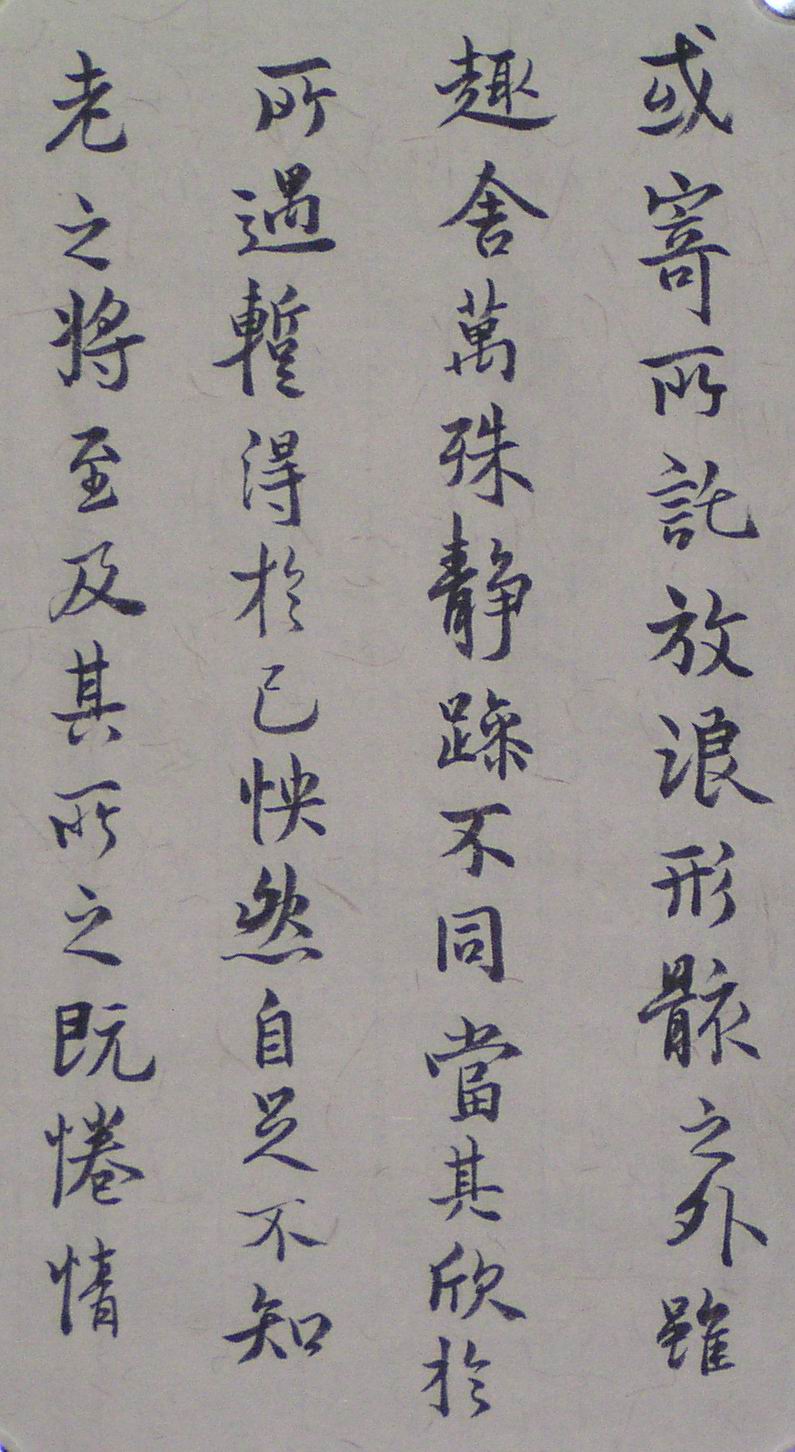 或寄所託放浪形骸之外雖
趣舍萬殊静躁不同當其欣於
所遇蹔得於己怏然自足不知
老之將至及其所之既惓情